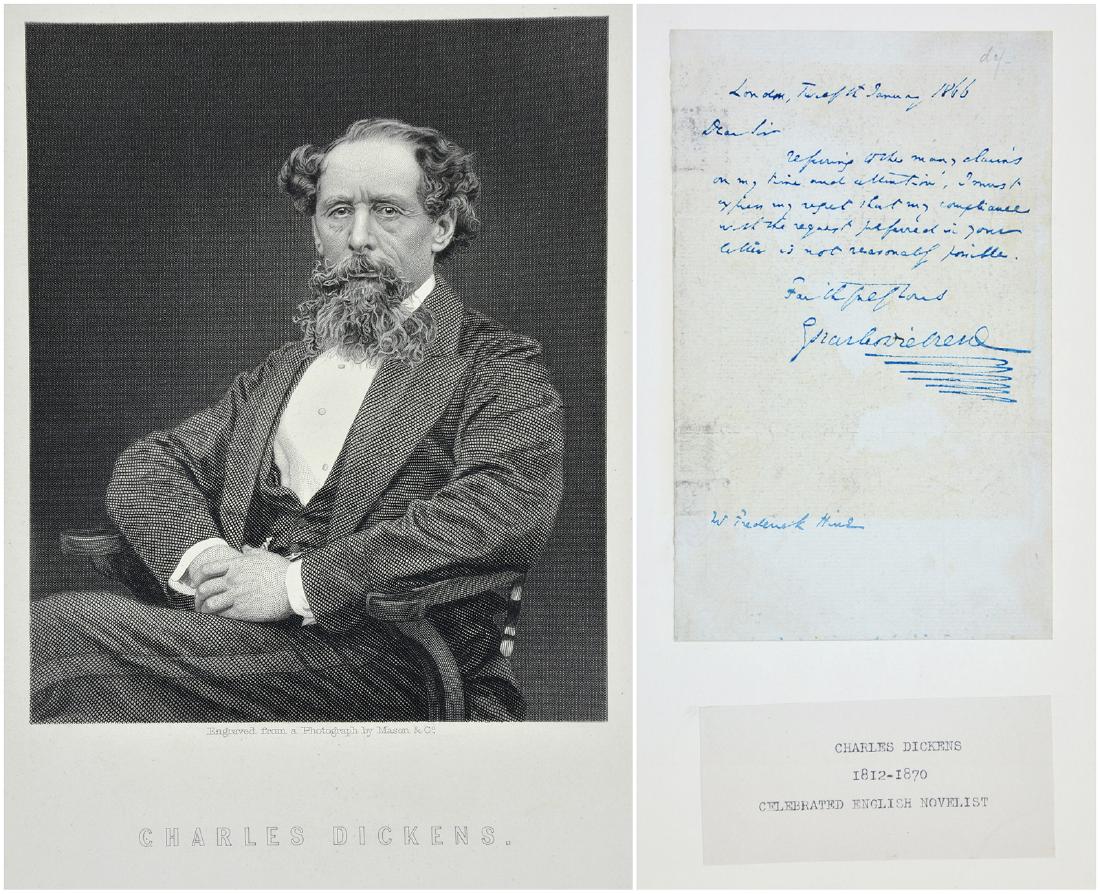 Engraved from a Photograph by Mason & Co.
CHARLES DICKENS.
London, Twelfth January 1866
Dear Sir
referring to the many claims
on my time and attention, I must
express my regret that my compliance
with the request preferred in your
letter is not reasonably possible.
Faithfully Yours
Charles Dickens
W Frederick
CHARLES DICKENS
1812-1870
CELEBRATED ENGLISH NOVELIST